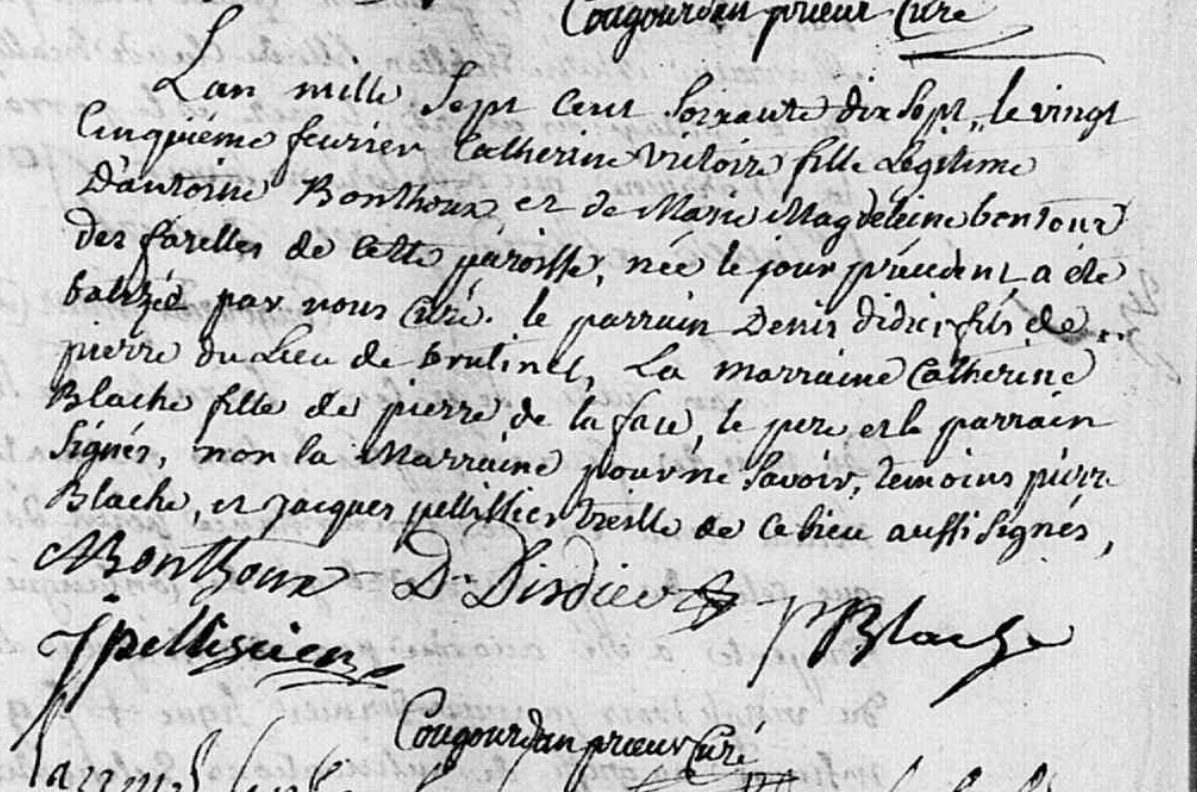 Cougourdan prieur Curé
Lan mille sept cent soixante dix sept, le vingt
Cinquiéme fevrier Catherine Victoire fille Legitime
D'antoine Bonthoux et de Marie Magdeleine bontoux
des farelles de cette paroisse, née le jour précédent a été
batizée par nous Curé. le parrain Denis didier fils de
pierre du Lieu de brutinel, La marraine Catherine
Blache fille de pierre de la face, le pere et le parrain
signés, non la Marraine pour ne savoir, temoins pierre
Blache, et jacques pellissier vieille de ce lieu aussi signés,
ABonthoux D. Disdier P Blache
J pelliscier
Cougourdan prieur Curé